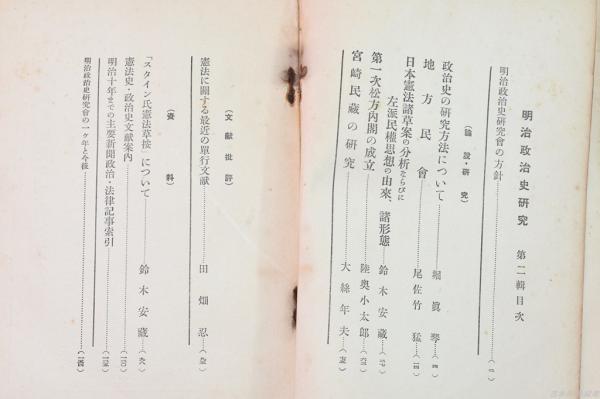 明治政治史研究 第二輯目次
明治政治史研究會の方針
(論説・研究)
政治史の研究方法について 堀眞琴
地方民會 尾佐竹猛
日本憲法諸草案の分析ならびに
左派民權思想の由來、諸形態 鈴木安藏
第一次松方内閣の成立 陸奥小太郎
宮崎民藏の研究 大絲年夫
(文獻批評)
憲法に關する最近の單行文獻 田畑忍
(資料)
「スタイン氏憲法草按」について 鈴木安藏
憲法史・政治史文獻案内
明治十年までの主要新聞政治・法律記事索引
明治政治史研究會の一ケ年と今後